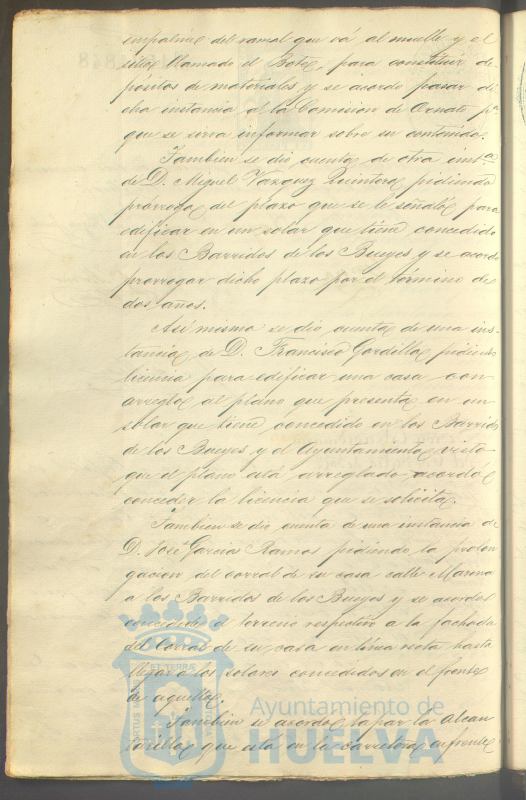 empalme del ramal que vá al muelle y el
sitio llamado el Bote, para constituir de-
pósitos de materiales y se acordó pasar di-
cha instancia á la Comision de Ornato pª
que se sirva informar sobre su contenido.
Tambien se dió cuenta de otra instª
de D. Miguel Vazquez Quintero pidiendo
prórroga del plazo que se le señaló para
edificar en un solar que tiene concedido
en los Barridos de los Bueyes y se acordó
prorrogar dicho plazo por el término de
dos años.
Asi mismo se dió cuenta de una ins-
tancia de D. Francisco Gordillo pidiendo
licencia para edificar una casa con
arreglo al plano que presenta en un
solar que tiene concedido en los Barridos
de los Bueyes y el Ayuntamiento visto
que el plano está arreglado acordó
conceder la licencia que se solicita.
Tambien se dió cuenta de una instancia de
D. José Garcia Ramos pidiendo la prolon-
gacion del corral de su casa calle Marina
a los Barridos de los Bueyes y se acordó
concederle el terreno respectivo a la fachada
del Corral de su casa en linea recta hasta
llegar á los solares concedidos en el frente
de aquella.
Tambien se acordó tapar la Alcan-
tarilla que está en la carretera enfrente
PORTUS MARIS ET TERRÆ
Ayuntamiento de
HUELVA